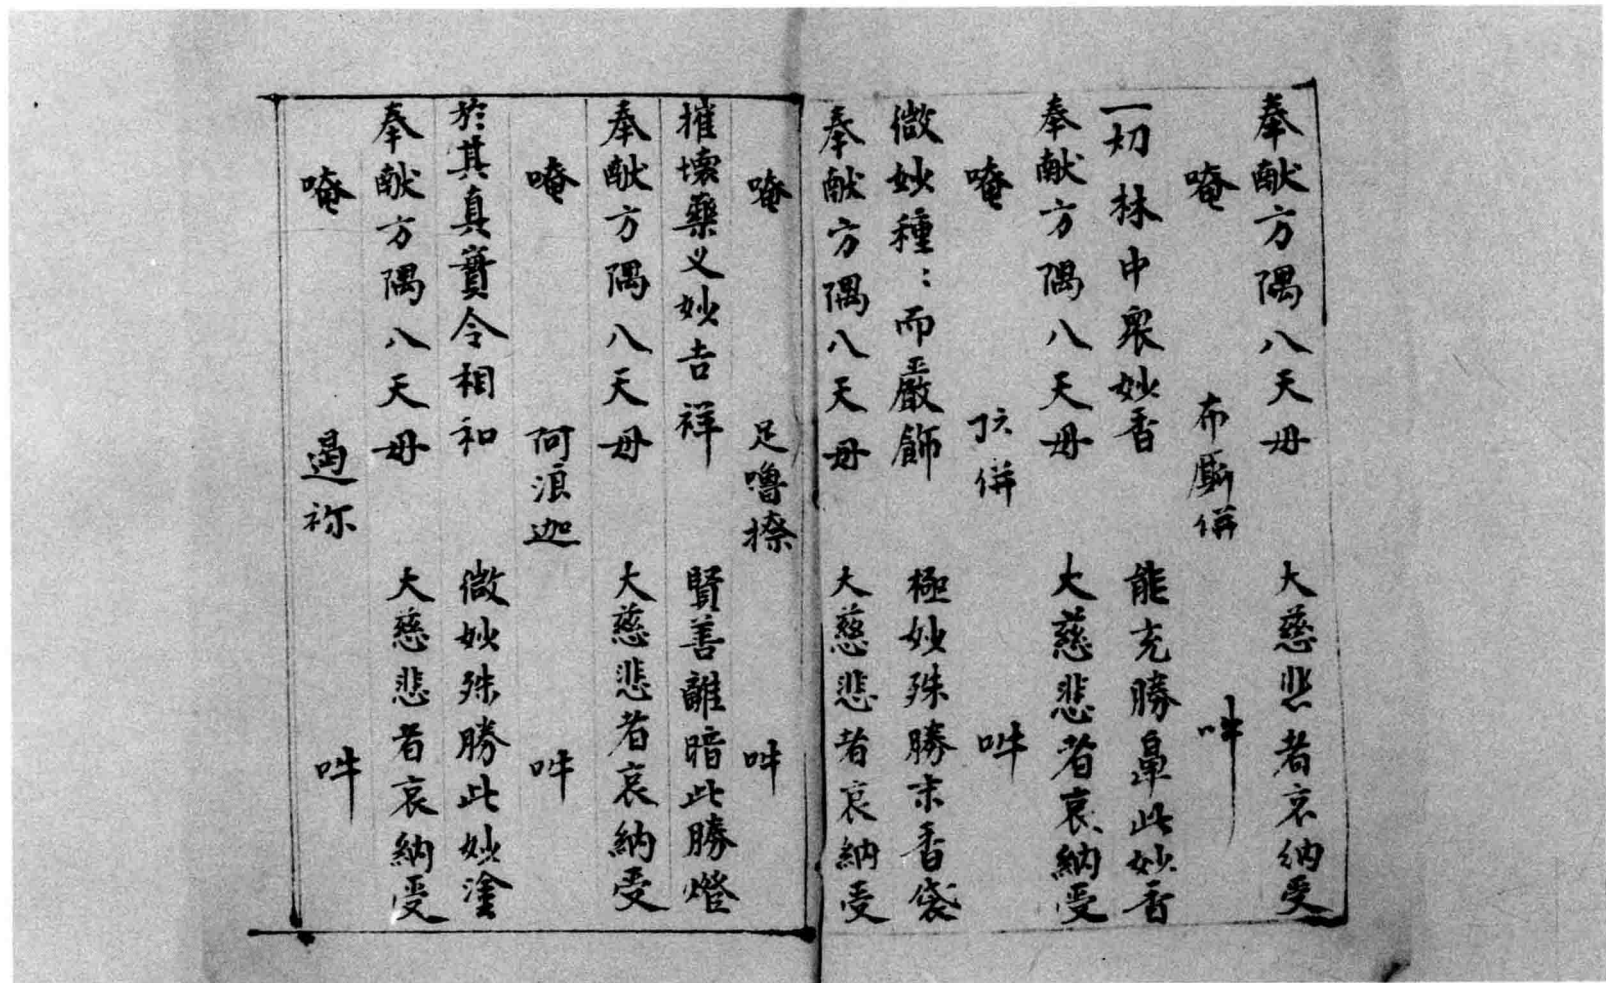 奉献方隅八天母　大慈悲者哀納受
唵　布厮併　吽
一切林中衆妙香　能充勝鼻此妙香
奉献方隅八天母　大慈悲者哀納受
唵　併　吽
微妙種：而嚴飾　極妙殊勝末香袋
奉献方隅八天母　大慈悲者哀納受
唵　足嚕撩　吽
摧壞藥义妙吉祥　賢善離暗此勝燈
奉献方隅八天母　大慈悲者哀納受
唵　阿浪迦　吽
於其真實令相和　微妙殊勝此妙塗
奉献方隅八天母　大慈悲者哀納受
唵　遏祢　吽